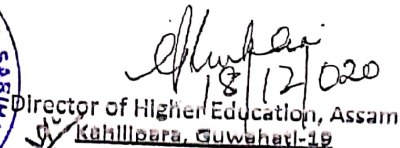 18/12/020
Director of Higher Education, Assam
Kahilipara, Guwahati-19